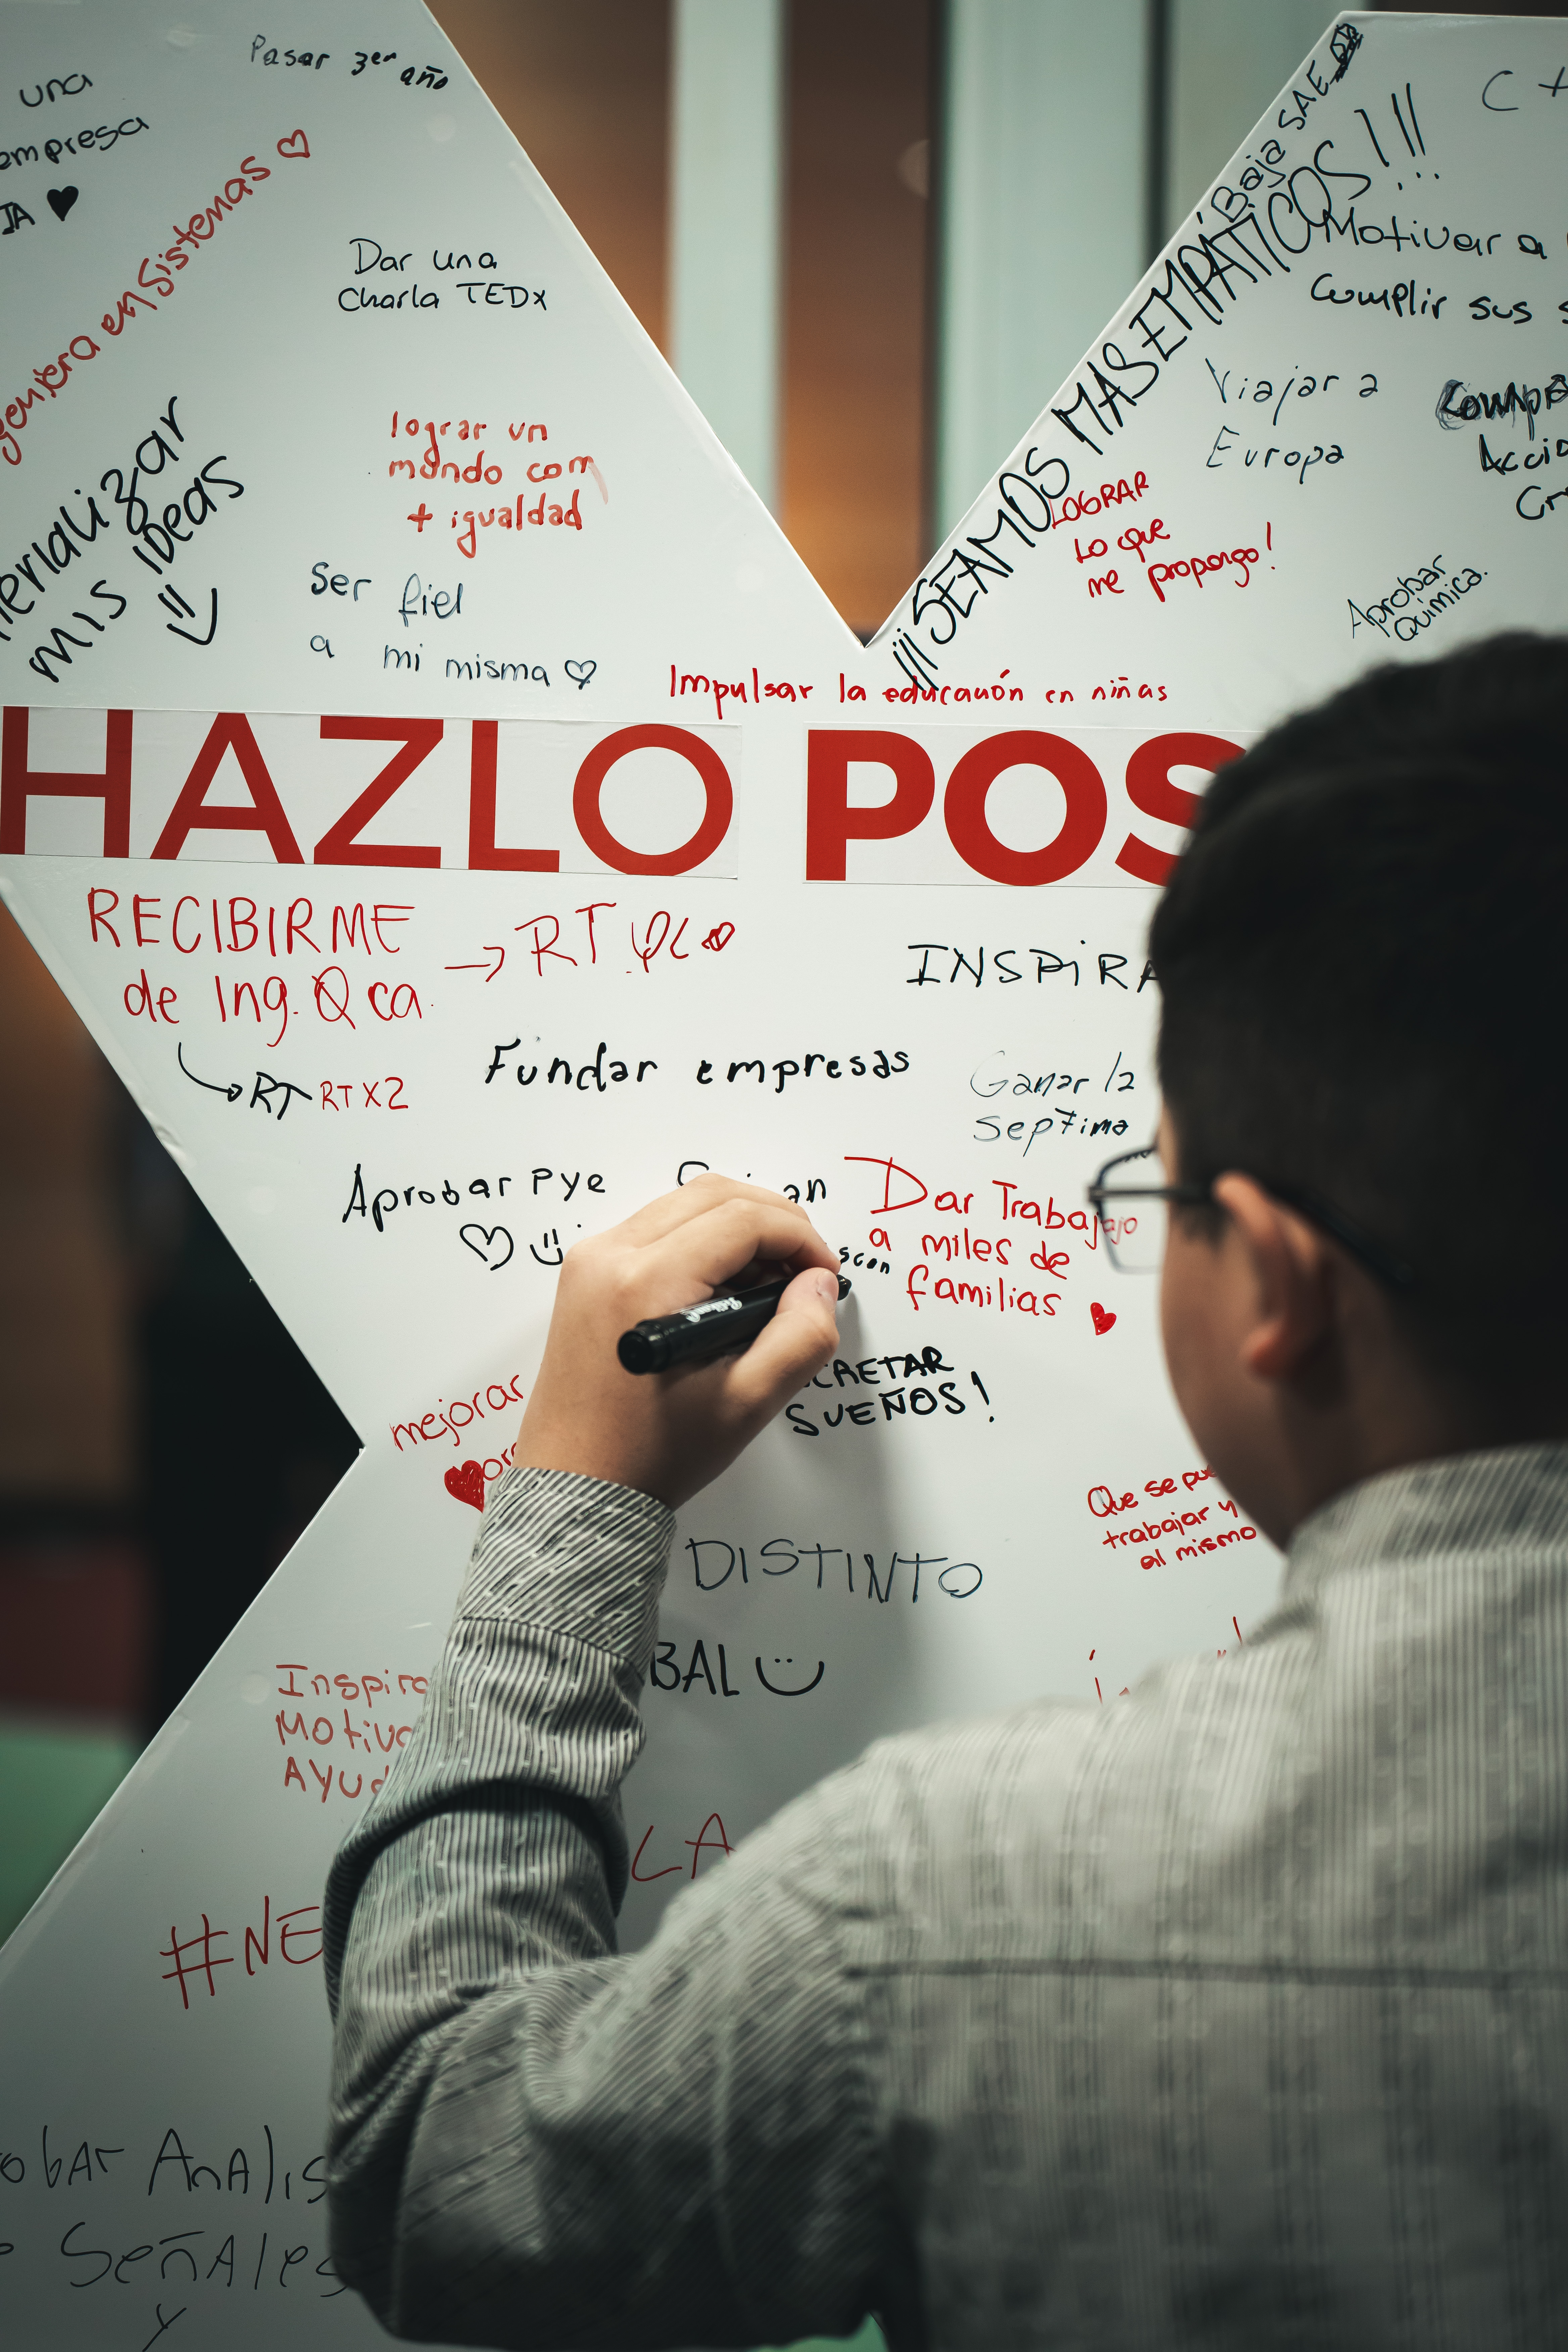 Pasar 3er año
una
empresa
IA
en Sistemas
Dar una
Charla TEDx
mis ideas
lograr un
mundo com
+ igualdad
Ser fiel
a mi misma
Baja SAE
¡¡¡SEAMOS MAS EMPÁTICOS!!!
C +
Motivar a
Cumplir sus
Viajar a
Europa
LOGRAR
Lo que
me propongo!
Aprobar
Química.
Impulsar la educación en niñas
HAZLO POS
RECIBIRME
de Ing. Qca.
→ RT
RT RT X2
INSPIRA
Fundar empresas
Ganar la
Sep7ima
Aprobar PYE
Dar Trabajo
a miles de
familias
CRETAR
SUEÑOS!
mejorar
Que se pue
trabajar y
al mismo
DISTINTO
BAL
Inspira
Motiva
AYUd
LA
#NE
obAr AnAlis
SeñAles
y